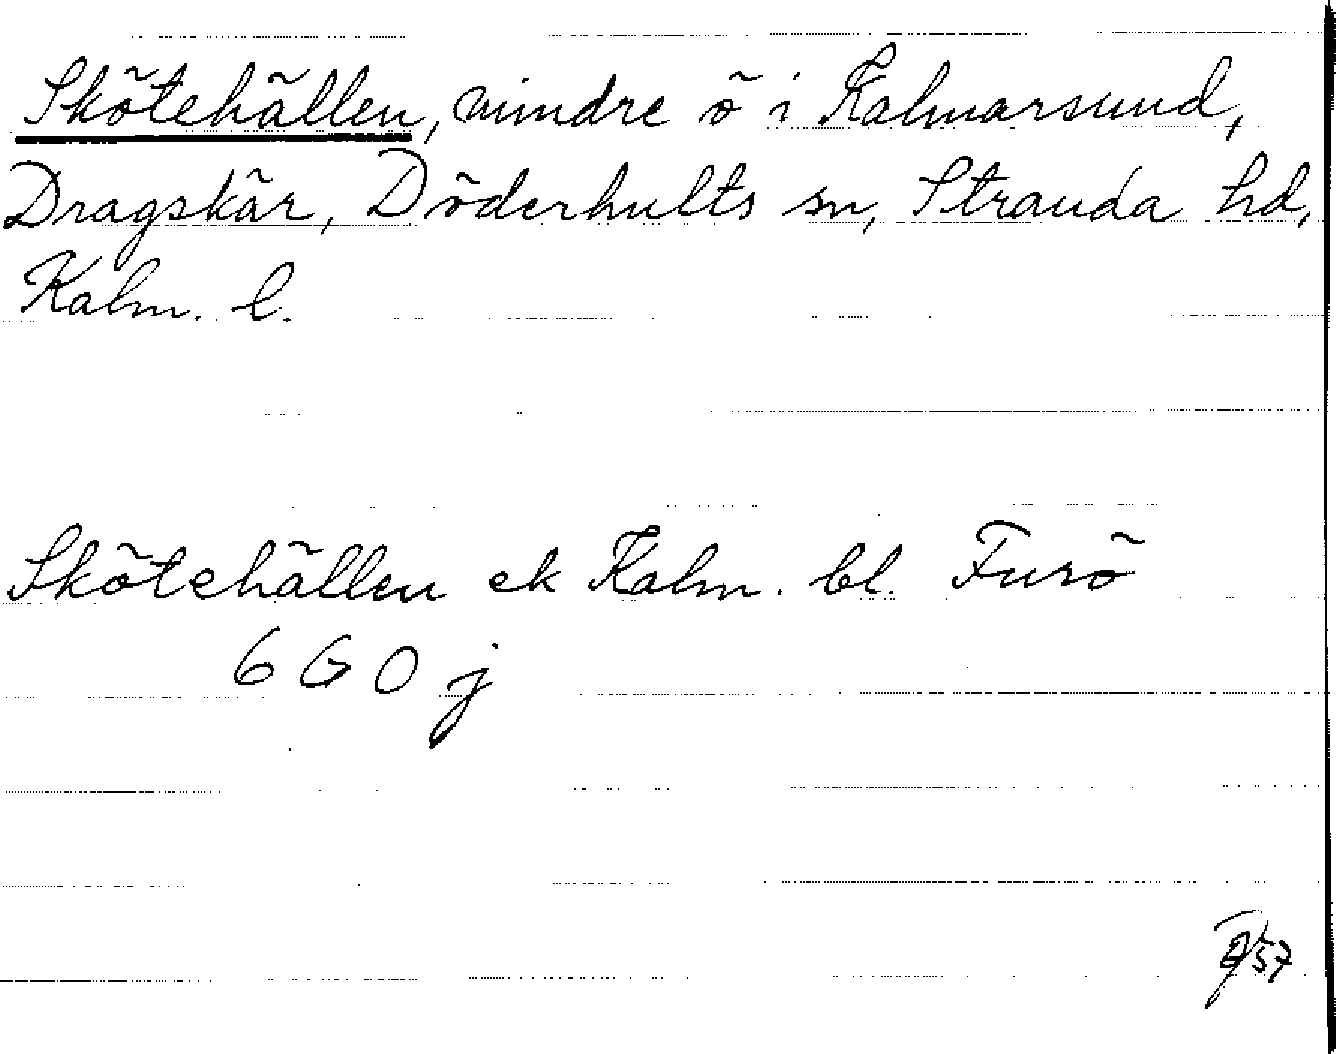 Skötehällen, mindre ö i Kalmarsund,
Dragskär, Döderhults sn, Stranda hd,
Kalm. l.
Skötehällen ek Kalm. bl. Furö
6 G O j
57